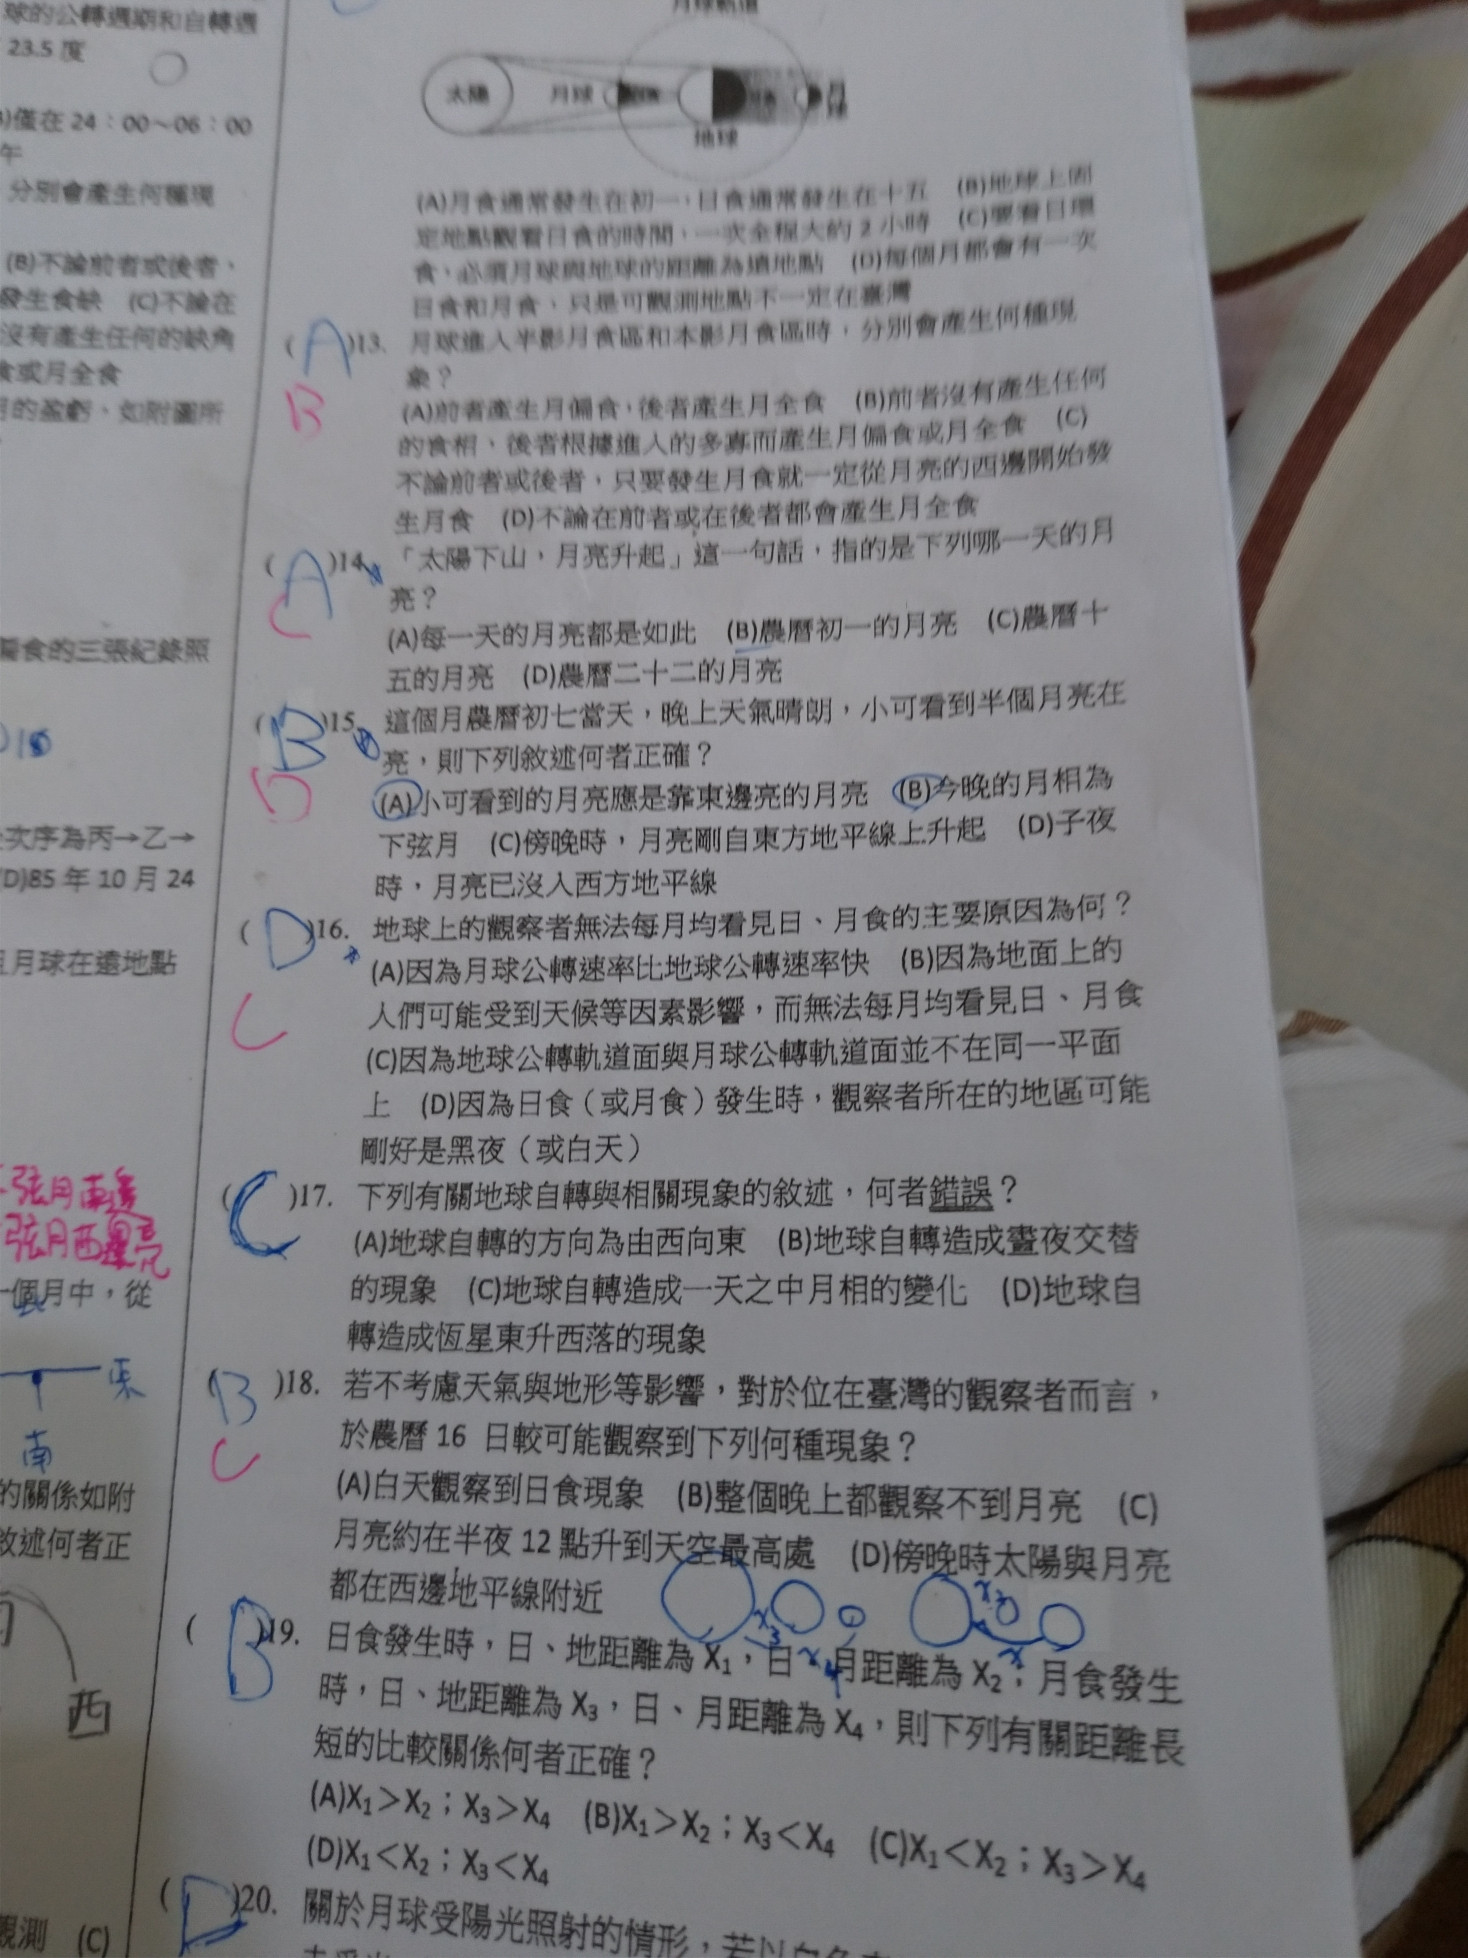 球的公轉週期和自轉週
23.5 度
僅在 24：00～06：00
午
分別會產生何種現
(B)不論前者或後者，
發生食缺 (C)不論在
沒有產生任何的缺角
食或月全食
月的盈虧，如附圖所
偏食的三張紀錄照
次序為丙→乙→
(D)85 年 10 月 24
且月球在遠地點
弦月東邊
弦月西邊亮
一個月中，從
東
南
的關係如附
敘述何者正
西
觀測 (C)
月球軌道
太陽
月球
地球
月球
(A)月食通常發生在初一，日食通常發生在十五 (B)地球上固
定地點觀看日食的時間，一次全程大約 2 小時 (C)要看日環
食，必須月球與地球的距離為遠地點 (D)每個月都會有一次
日食和月食，只是可觀測地點不一定在臺灣
( A )13. 月球進入半影月食區和本影月食區時，分別會產生何種現
象？
B
(A)前者產生月偏食，後者產生月全食 (B)前者沒有產生任何
的食相，後者根據進入的多寡而產生月偏食或月全食 (C)
不論前者或後者，只要發生月食就一定從月亮的西邊開始發
生月食 (D)不論在前者或在後者都會產生月全食
( A )14. 「太陽下山，月亮升起」這一句話，指的是下列哪一天的月
亮？
C
(A)每一天的月亮都是如此 (B)農曆初一的月亮 (C)農曆十
五的月亮 (D)農曆二十二的月亮
( B )15. 這個月農曆初七當天，晚上天氣晴朗，小可看到半個月亮在
亮，則下列敘述何者正確？
D
(A)小可看到的月亮應是靠東邊亮的月亮 (B)今晚的月相為
下弦月 (C)傍晚時，月亮剛自東方地平線上升起 (D)子夜
時，月亮已沒入西方地平線
( D )16. 地球上的觀察者無法每月均看見日、月食的主要原因為何？
(A)因為月球公轉速率比地球公轉速率快 (B)因為地面上的
人們可能受到天候等因素影響，而無法每月均看見日、月食
C
(C)因為地球公轉軌道面與月球公轉軌道面並不在同一平面
上 (D)因為日食（或月食）發生時，觀察者所在的地區可能
剛好是黑夜（或白天）
( C )17. 下列有關地球自轉與相關現象的敘述，何者錯誤？
(A)地球自轉的方向為由西向東 (B)地球自轉造成晝夜交替
的現象 (C)地球自轉造成一天之中月相的變化 (D)地球自
轉造成恆星東升西落的現象
( B )18. 若不考慮天氣與地形等影響，對於位在臺灣的觀察者而言，
於農曆 16 日較可能觀察到下列何種現象？
C
(A)白天觀察到日食現象 (B)整個晚上都觀察不到月亮 (C)
月亮約在半夜 12 點升到天空最高處 (D)傍晚時太陽與月亮
都在西邊地平線附近
( B )19. 日食發生時，日、地距離為 X₁，日、月距離為 X₂；月食發生
時，日、地距離為 X₃，日、月距離為 X₄，則下列有關距離長
短的比較關係何者正確？
(A)X₁＞X₂；X₃＞X₄ (B)X₁＞X₂；X₃＜X₄ (C)X₁＜X₂；X₃＞X₄
(D)X₁＜X₂；X₃＜X₄
( D )20. 關於月球受陽光照射的情形，若以白色